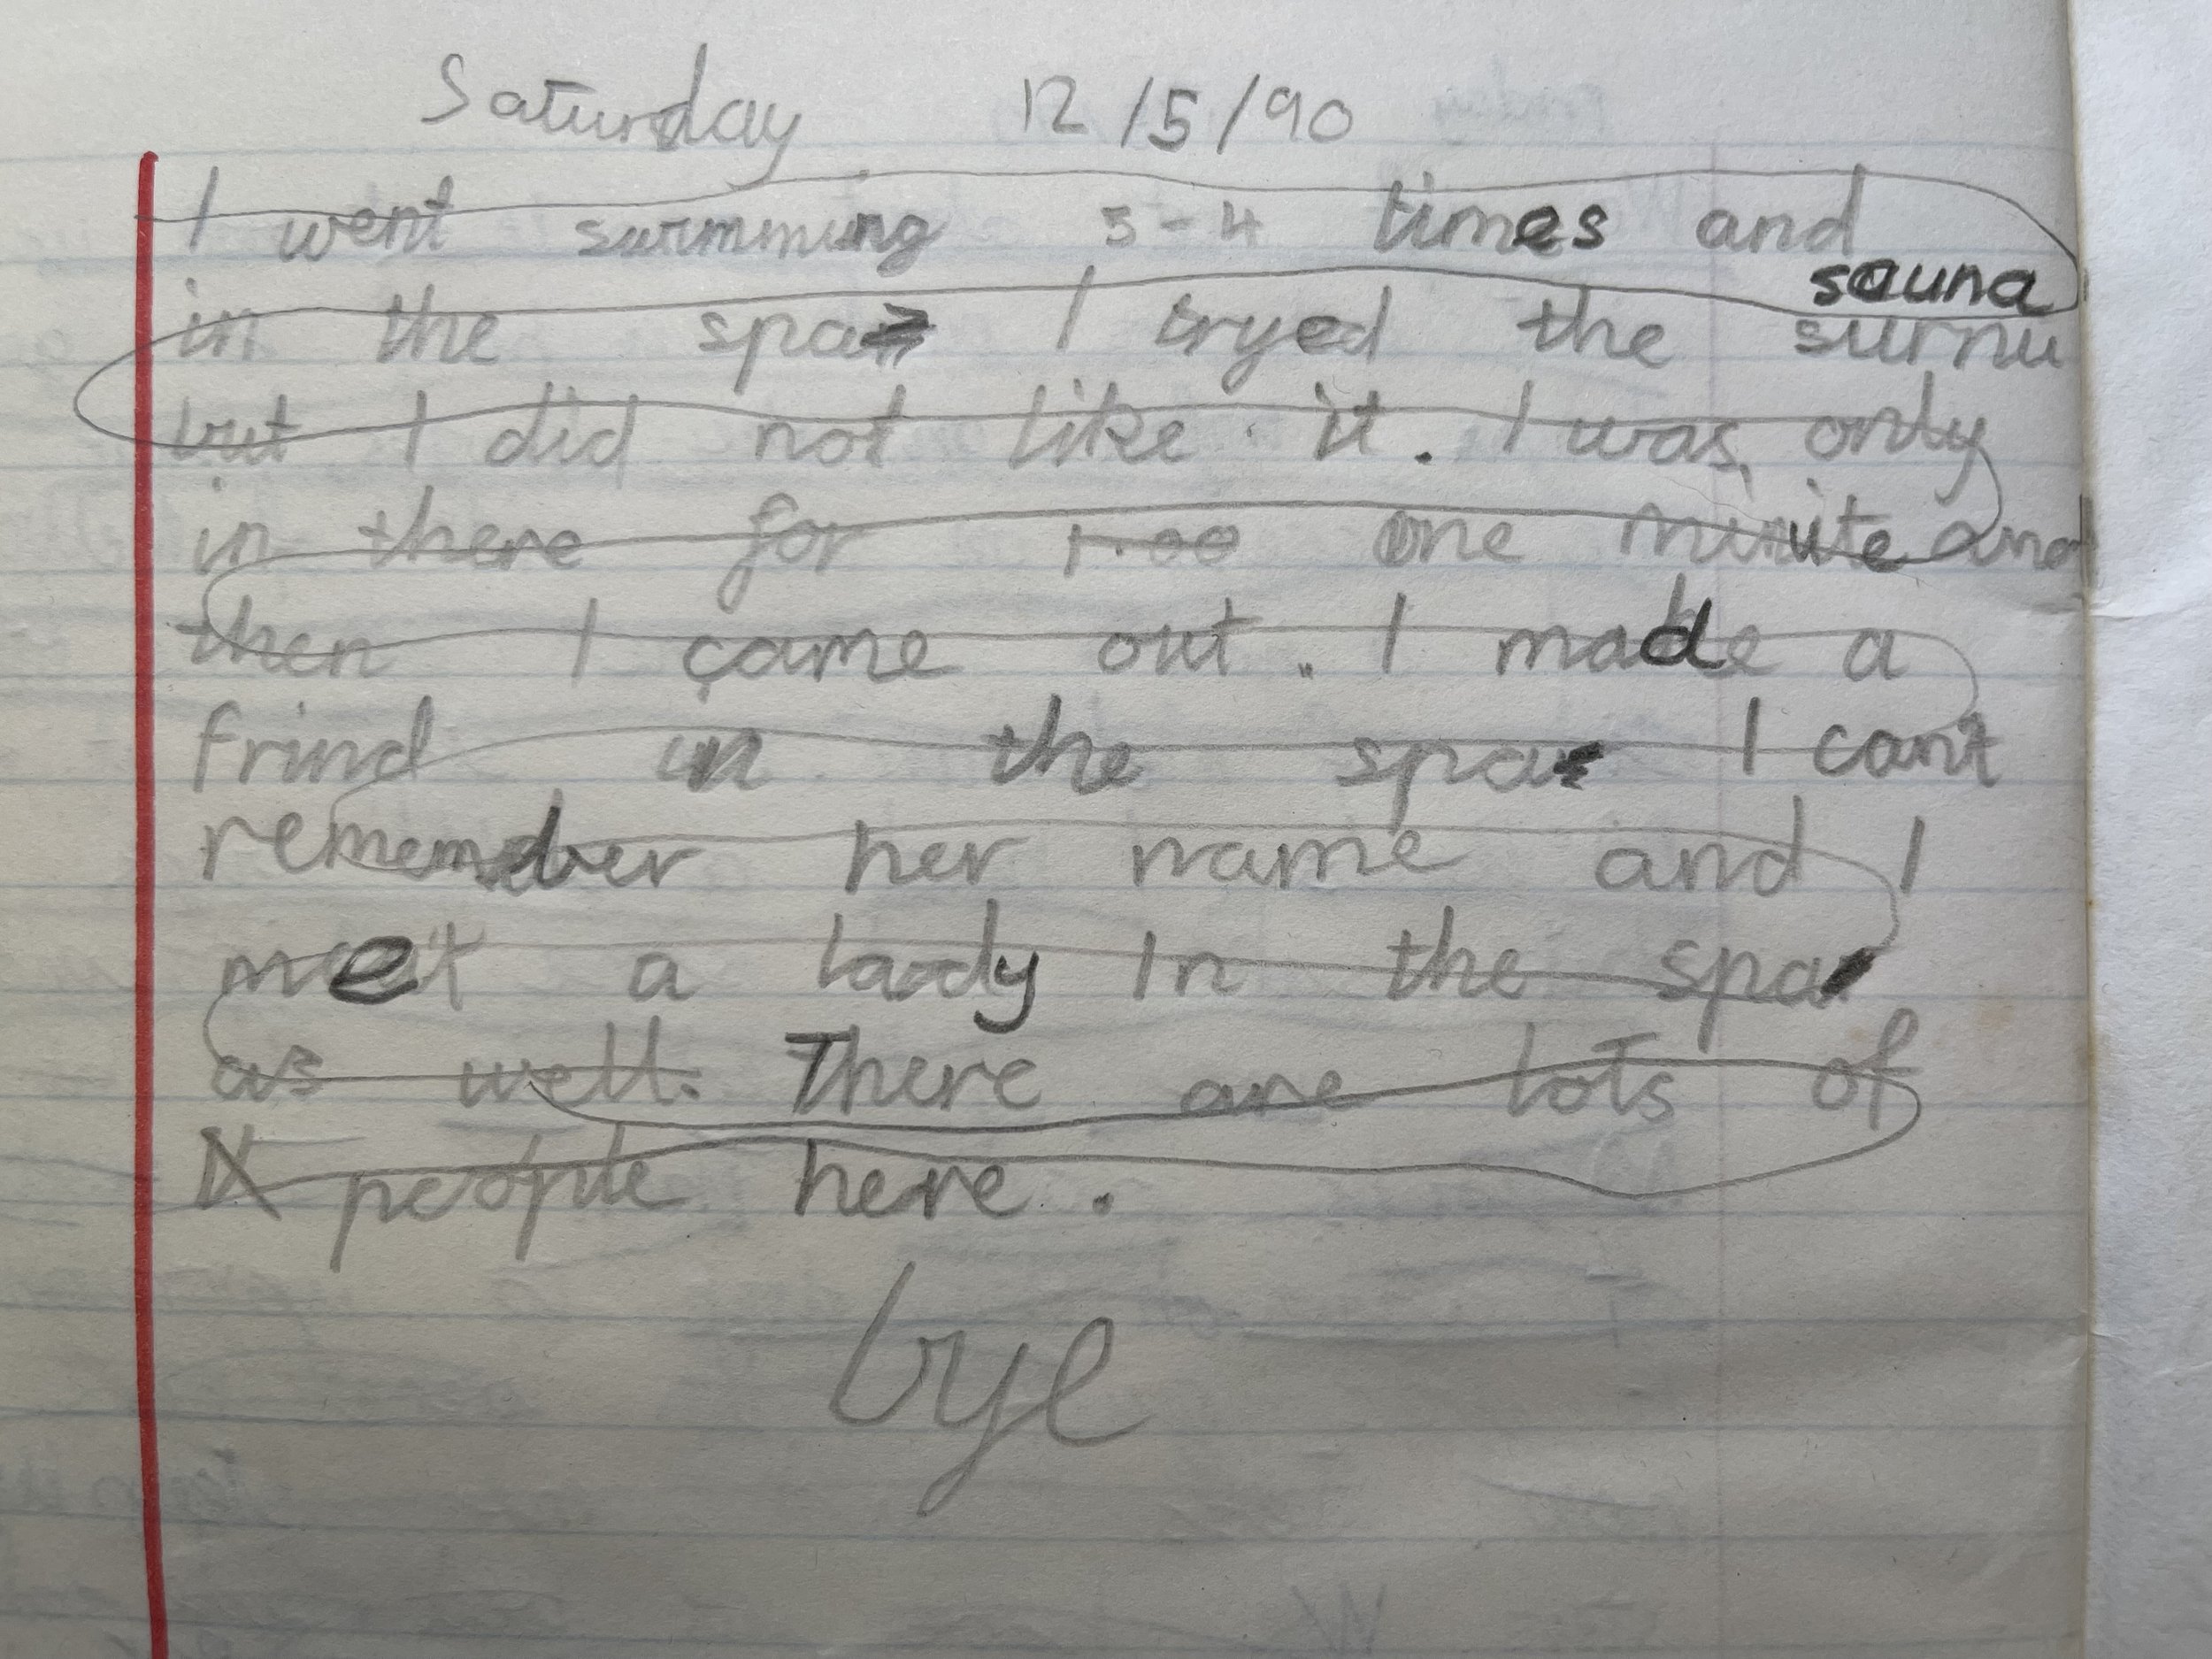 Saturday 12/5/90
I went swimming 3-4 times and
sauna
in the spa I tryed the surnu
but I did not like it. I was only
in there for 1.00 one minute and
then I came out. I made a
frind in the spa I cant
remember her name and I
met a lady In the spa
as well. There are lots of
people here.
bye